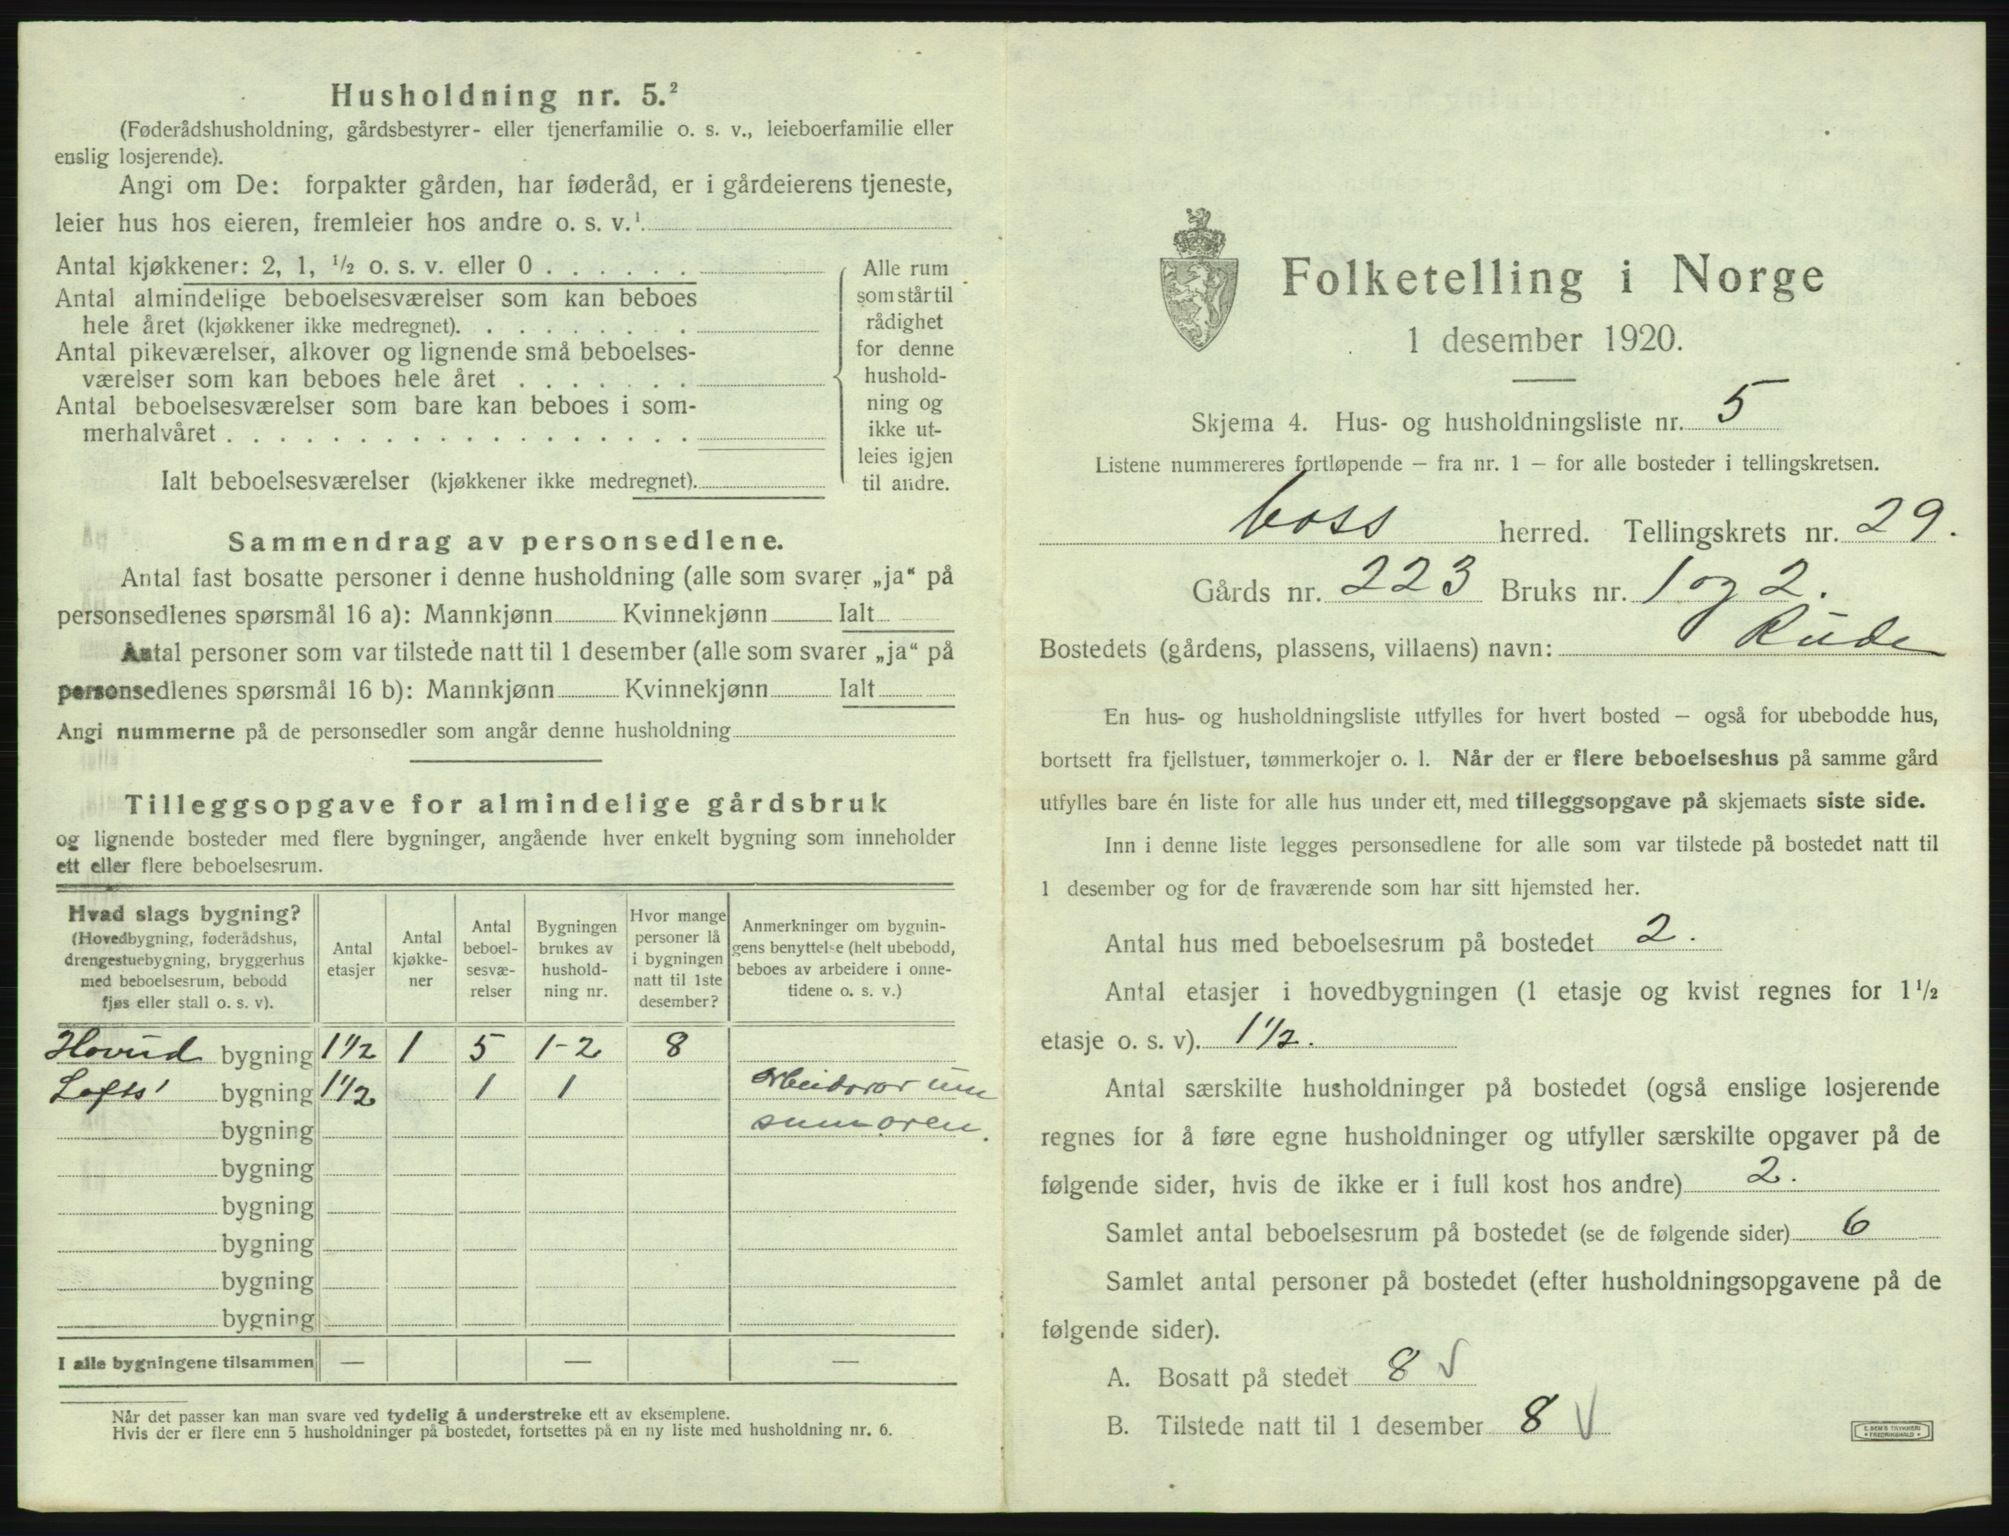 Husholdning nr. 5.²
(Føderådshusholdning, gårdsbestyrer- eller tjenerfamilie o. s. v., leieboerfamilie eller
enslig losjerende).
Angi om De: forpakter gården, har føderåd, er i gårdeierens tjeneste,
leier hus hos eieren, fremleier hos andre o. s. v.¹
Antal kjøkkener: 2, 1, ½ o. s. v. eller 0 . . . . . .
Antal almindelige beboelsesværelser som kan beboes
hele året (kjøkkener ikke medregnet). . . . . . . . .
Antal pikeværelser, alkover og lignende små beboelses-
værelser som kan beboes hele året . . . . . . .
Antal beboelsesværelser som bare kan beboes i som-
merhalvåret . . . . . . . . . . . . . . . . . .
Ialt beboelsesværelser (kjøkkener ikke medregnet).
Alle rum
som står til
rådighet
for denne
hushold-
ning og
ikke ut-
leies igjen
til andre.
Sammendrag av personsedlene.
Antal fast bosatte personer i denne husholdning (alle som svarer „ja“ på
personsedlenes spørsmål 16 a): Mannkjønn Kvinnekjønn Ialt
Antal personer som var tilstede natt til 1 desember (alle som svarer „ja“ på
personsedlenes spørsmål 16 b): Mannkjønn Kvinnekjønn Ialt
Angi nummerne på de personsedler som angår denne husholdning
Tilleggsopgave for almindelige gårdsbruk
og lignende bosteder med flere bygninger, angående hver enkelt bygning som inneholder
ett eller flere beboelsesrum.
Hvad slags bygning?
(Hovedbygning, føderådshus,
drengestuebygning, bryggerhus
med beboelsesrum, bebodd
fjøs eller stall o. s. v).
Antal
etasjer
Antal
kjøkke-
ner
Antal
beboel-
sesvæ-
relser
Bygningen
brukes av
hushold-
ning nr.
Hvor mange
personer lå
i bygningen
natt til 1ste
desember?
Anmerkninger om bygnin-
gens benyttelse (helt ubebodd,
beboes av arbeidere i onne-
tidene o. s. v.)
Hovud bygning 1½ 1 5 1-2 8
Lofts' bygning 1½ 1 1 Arbeidarar um
bygning sumaren.
bygning
bygning
bygning
bygning
bygning
I alle bygningene tilsammen — — —
Når det passer kan man svare ved tydelig å understreke ett av eksemplene.
Hvis der er flere enn 5 husholdninger på bostedet, fortsettes på en ny liste med husholdning nr. 6.
Folketelling i Norge
1 desember 1920.
Skjema 4. Hus- og husholdningsliste nr. 5
Listene nummereres fortløpende – fra nr. 1 – for alle bosteder i tellingskretsen.
Voss herred. Tellingskrets nr. 29.
Gårds nr. 223 Bruks nr. 1 og 2.
Bostedets (gårdens, plassens, villaens) navn: Rude
En hus- og husholdningsliste utfylles for hvert bosted – også for ubebodde hus,
bortsett fra fjellstuer, tømmerkojer o. l. Når der er flere beboelseshus på samme gård
utfylles bare én liste for alle hus under ett, med tilleggsopgave på skjemaets siste side.
Inn i denne liste legges personsedlene for alle som var tilstede på bostedet natt til
1 desember og for de fraværende som har sitt hjemsted her.
Antal hus med beboelsesrum på bostedet 2.
Antal etasjer i hovedbygningen (1 etasje og kvist regnes for 1½
etasje o. s. v). 1½.
Antal særskilte husholdninger på bostedet (også enslige losjerende
regnes for å føre egne husholdninger og utfyller særskilte opgaver på de
følgende sider, hvis de ikke er i full kost hos andre) 2.
Samlet antal beboelsesrum på bostedet (se de følgende sider) 6
Samlet antal personer på bostedet (efter husholdningsopgavene på de
følgende sider).
A. Bosatt på stedet 8 √
B. Tilstede natt til 1 desember 8 √
E. SEM'S TRYKKERI
FREDRIKSHALD